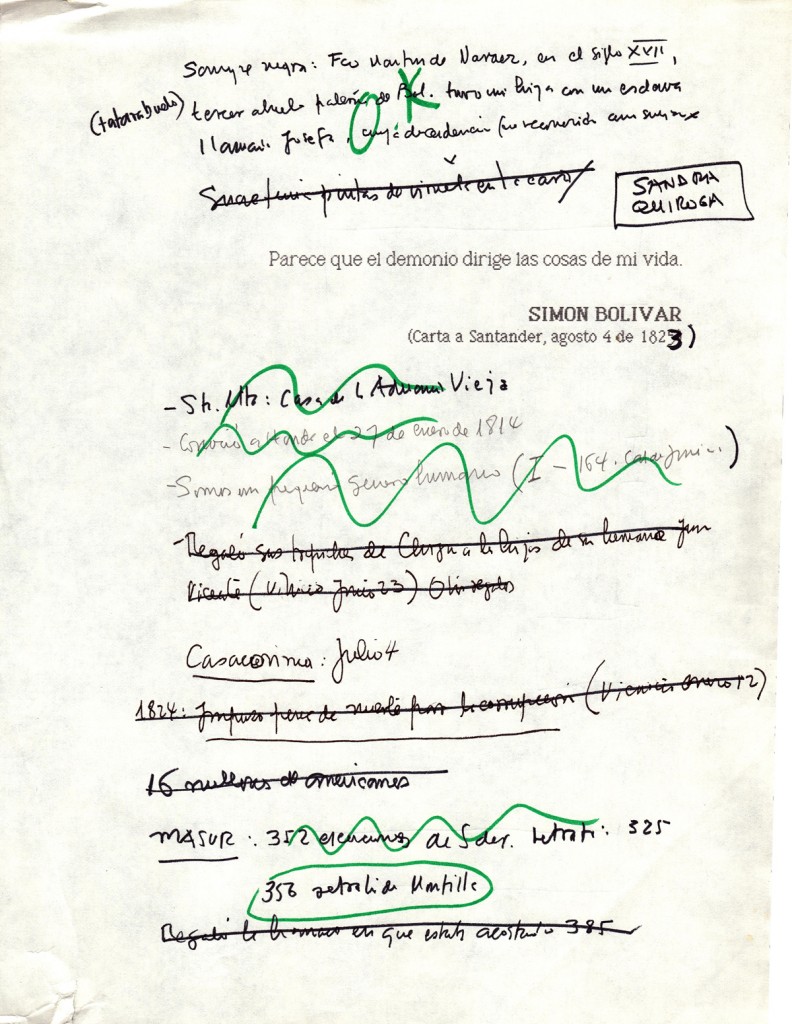 Sangre negra: Fco Martin de Narvaez, en el siglo XVII,
(tatarabuelo) tercer abuelo paterno de Bol. tuvo una hija con una esclava
llamada Josefa, cuya descendencia fue reconocida
OK
en la cara
SANDRA
QUIROGA
Parece que el demonio dirige las cosas de mi vida.
SIMON BOLIVAR
(Carta a Santander, agosto 4 de 1823)
- Sta. Mta: Casa de la Aduana Vieja
- el 27 de enero de 1814
- Somos un pequeño género humano (I - 164.
- Regaló sus de a la hija de su hermano Juan
Vicente ( Junio 23)
Casacoima: Julio 4
1824: Impuso pena de muerte para la corrupción ( enero 12)
16 millones de americanos
MASUR: 352 de Sder. retrato: 325
356 retrato de Montilla
Regaló la hamaca en que estaba acostado 385